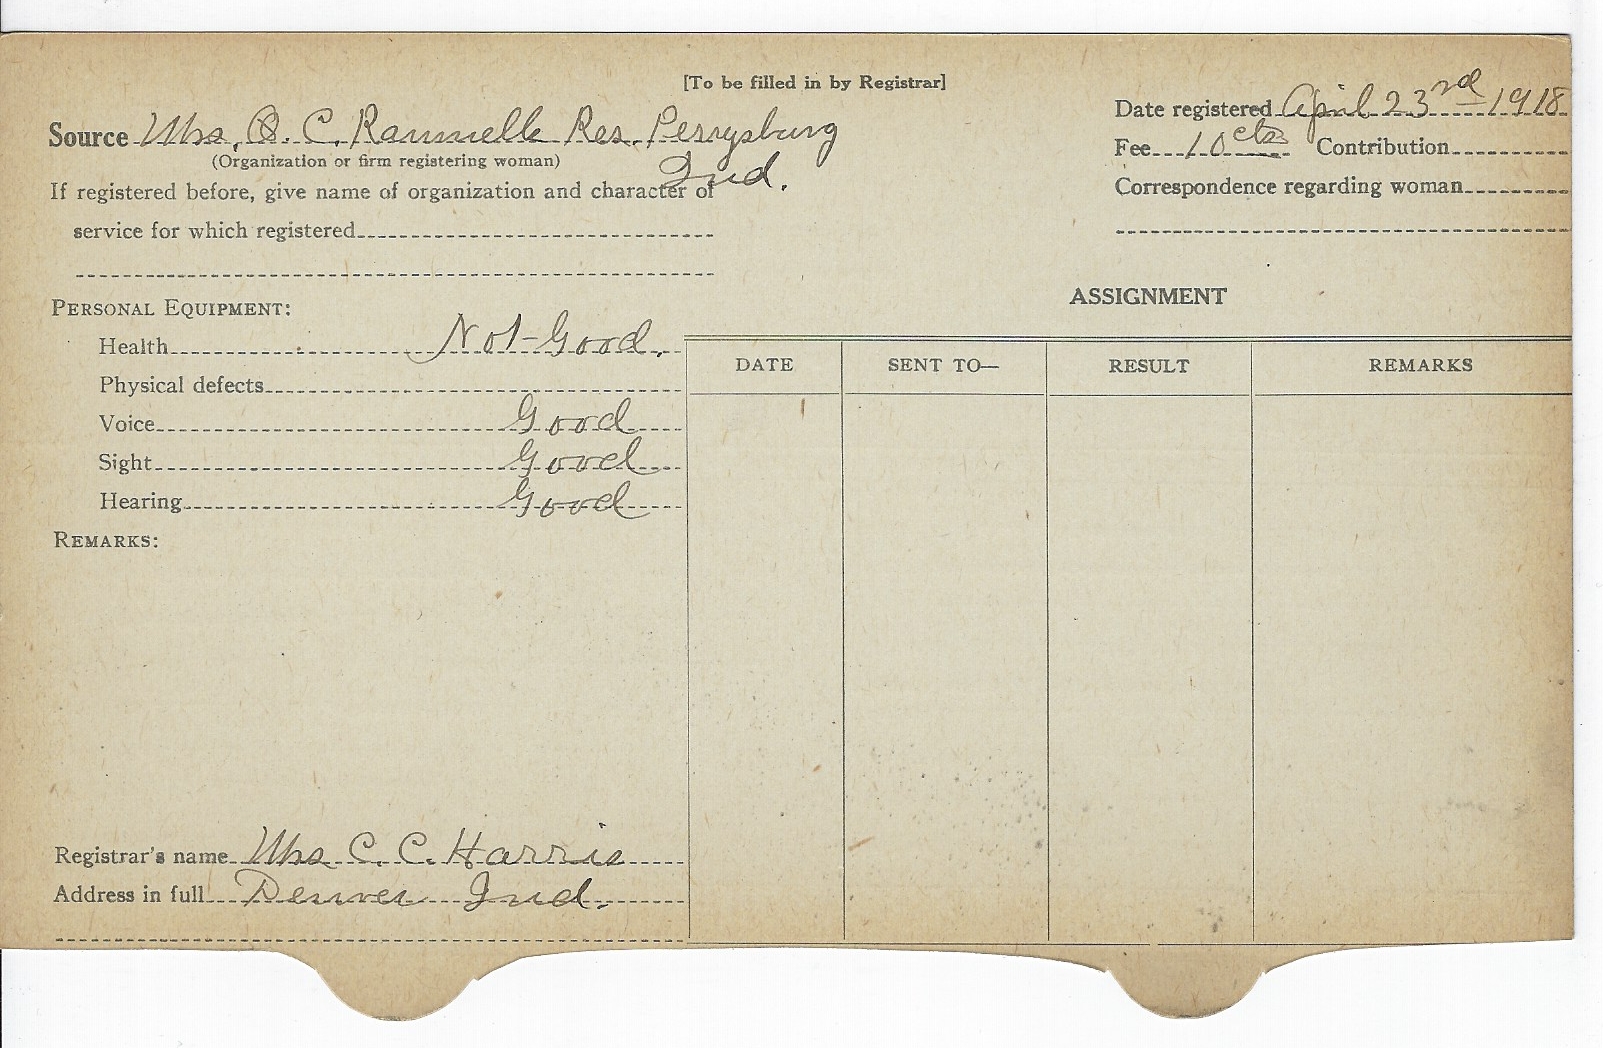 [To be filled in by Registrar]
Source Mrs. O. C. Rammelle Res. Perrysburg
Ind.
(Organization or firm registering woman)
If registered before, give name of organization and character of
service for which registered
Date registered April 23rd 1918
Fee 10 cts Contribution
Correspondence regarding woman
PERSONAL EQUIPMENT:
Health Not Good.
Physical defects
Voice Good
Sight Good
Hearing Good
REMARKS:
Registrar's name Mrs C. C. Harris
Address in full Denver Ind.
ASSIGNMENT
DATE SENT TO— RESULT REMARKS